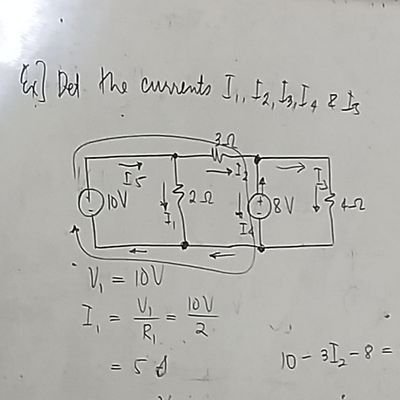 Ex] Det the currents I1, I2, I3, I4 & I5
3Ω
I5
I2
10V
I1
2Ω
I4
8V
I3
4Ω
V1 = 10V
I1 = V1/R1 = 10V/2
= 5A
10 - 3I2 - 8 =